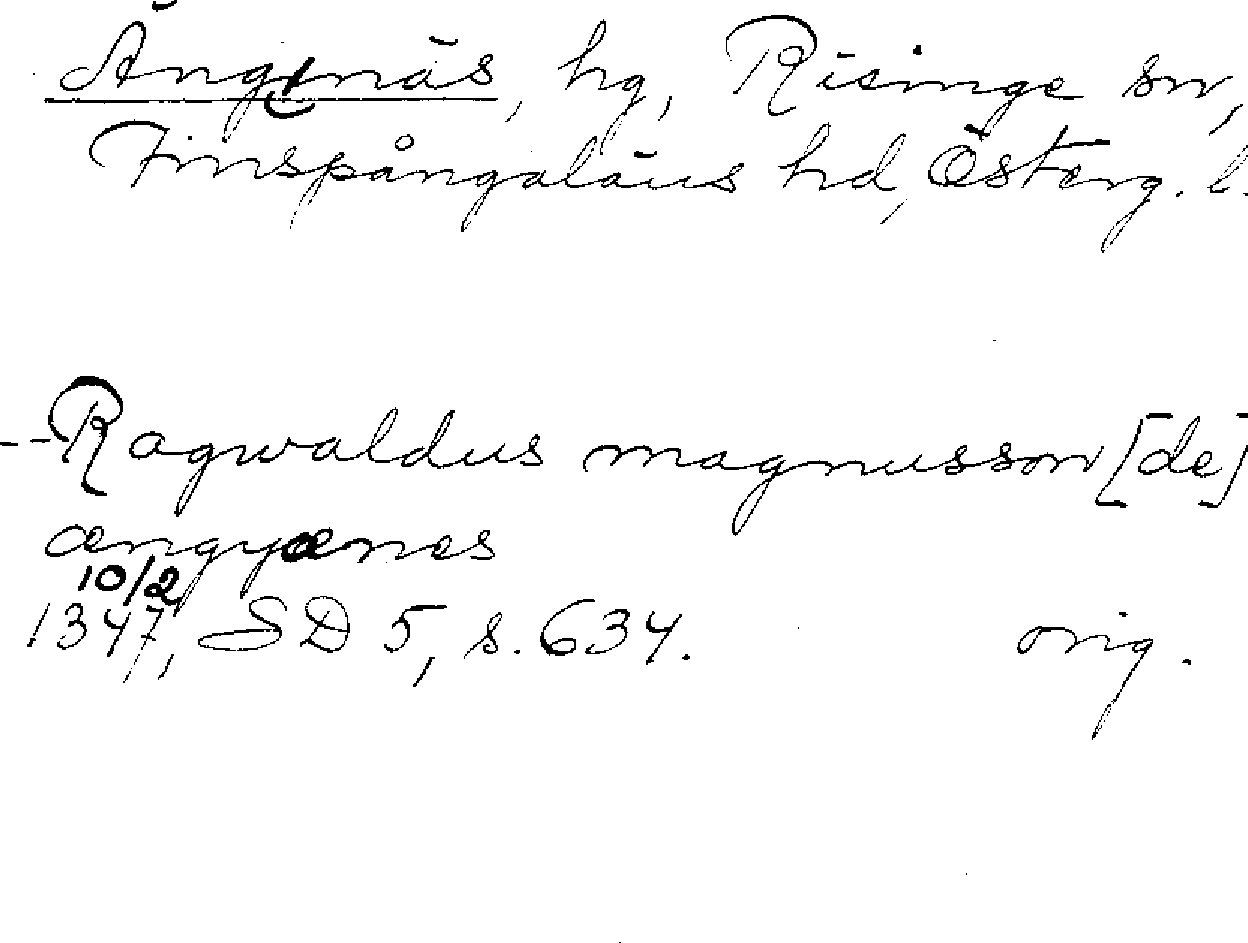 Ängnäs, hg, Risinge sn,
Finspångaläns hd, Österg. l.
--Ragwaldus magnusson [de]
ængyænes
10/2
1347, SD 5, s. 634. orig.